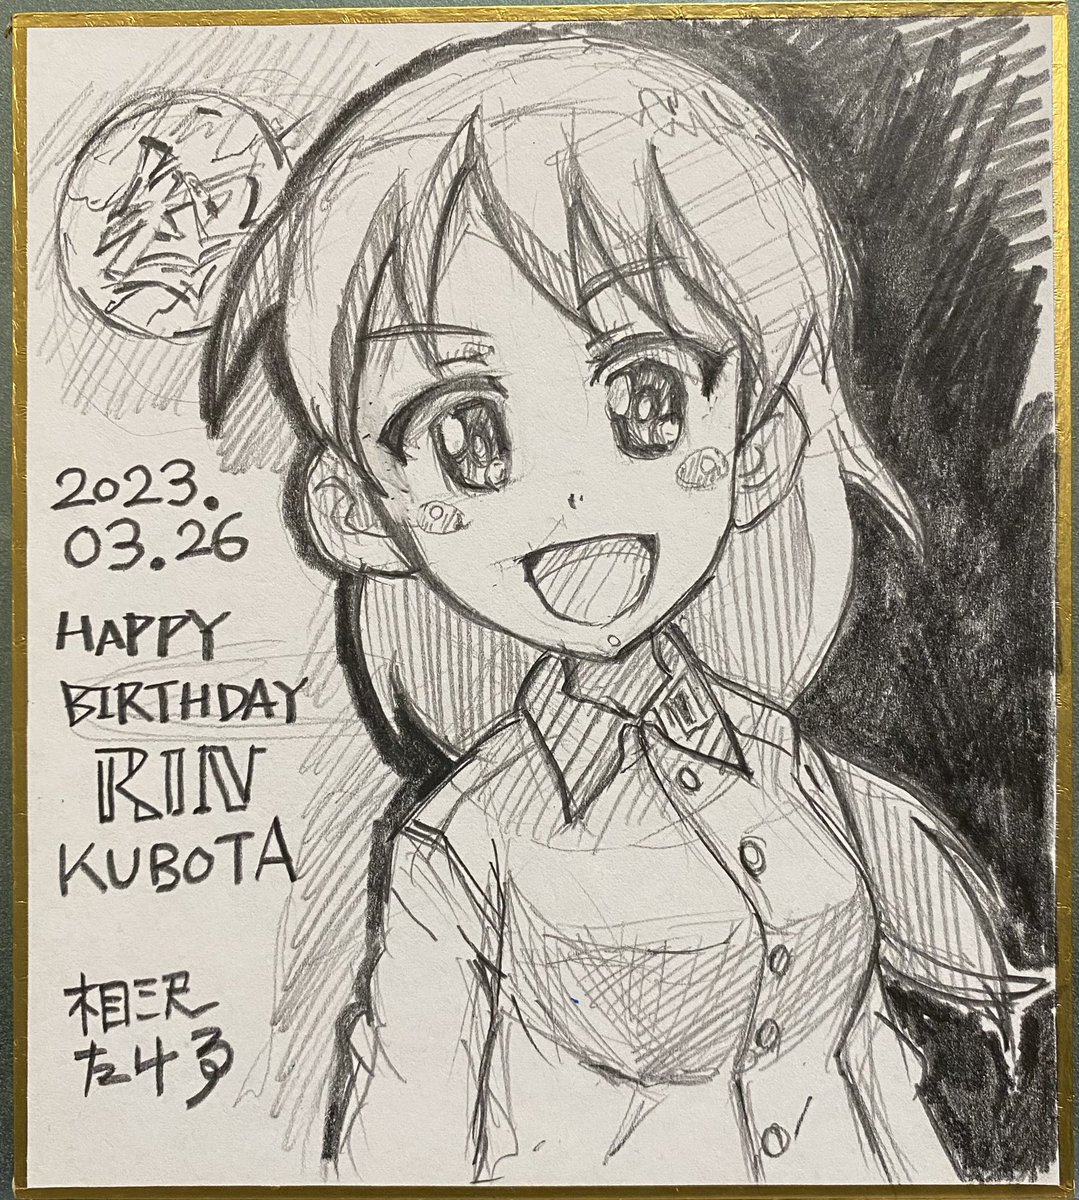 2023.
03.26
HAPPY
BIRTHDAY
RIN
KUBOTA
相沢
たける